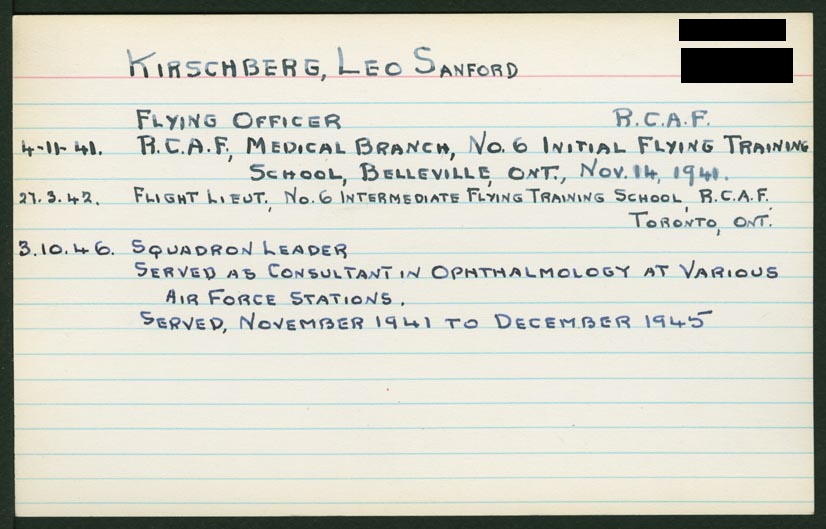 KIRSCHBERG, LEO SANFORD
FLYING OFFICER R.C.A.F.
4-11-41. R.C.A.F., MEDICAL BRANCH, NO. 6 INITIAL FLYING TRAINING
SCHOOL, BELLEVILLE, ONT., NOV. 14, 1941.
27.3.42. FLIGHT LIEUT., NO. 6 INTERMEDIATE FLYING TRAINING SCHOOL, R.C.A.F.
TORONTO, ONT.
3.10.46. SQUADRON LEADER
SERVED AS CONSULTANT IN OPHTHALMOLOGY AT VARIOUS
AIR FORCE STATIONS.
SERVED, NOVEMBER 1941 TO DECEMBER 1945